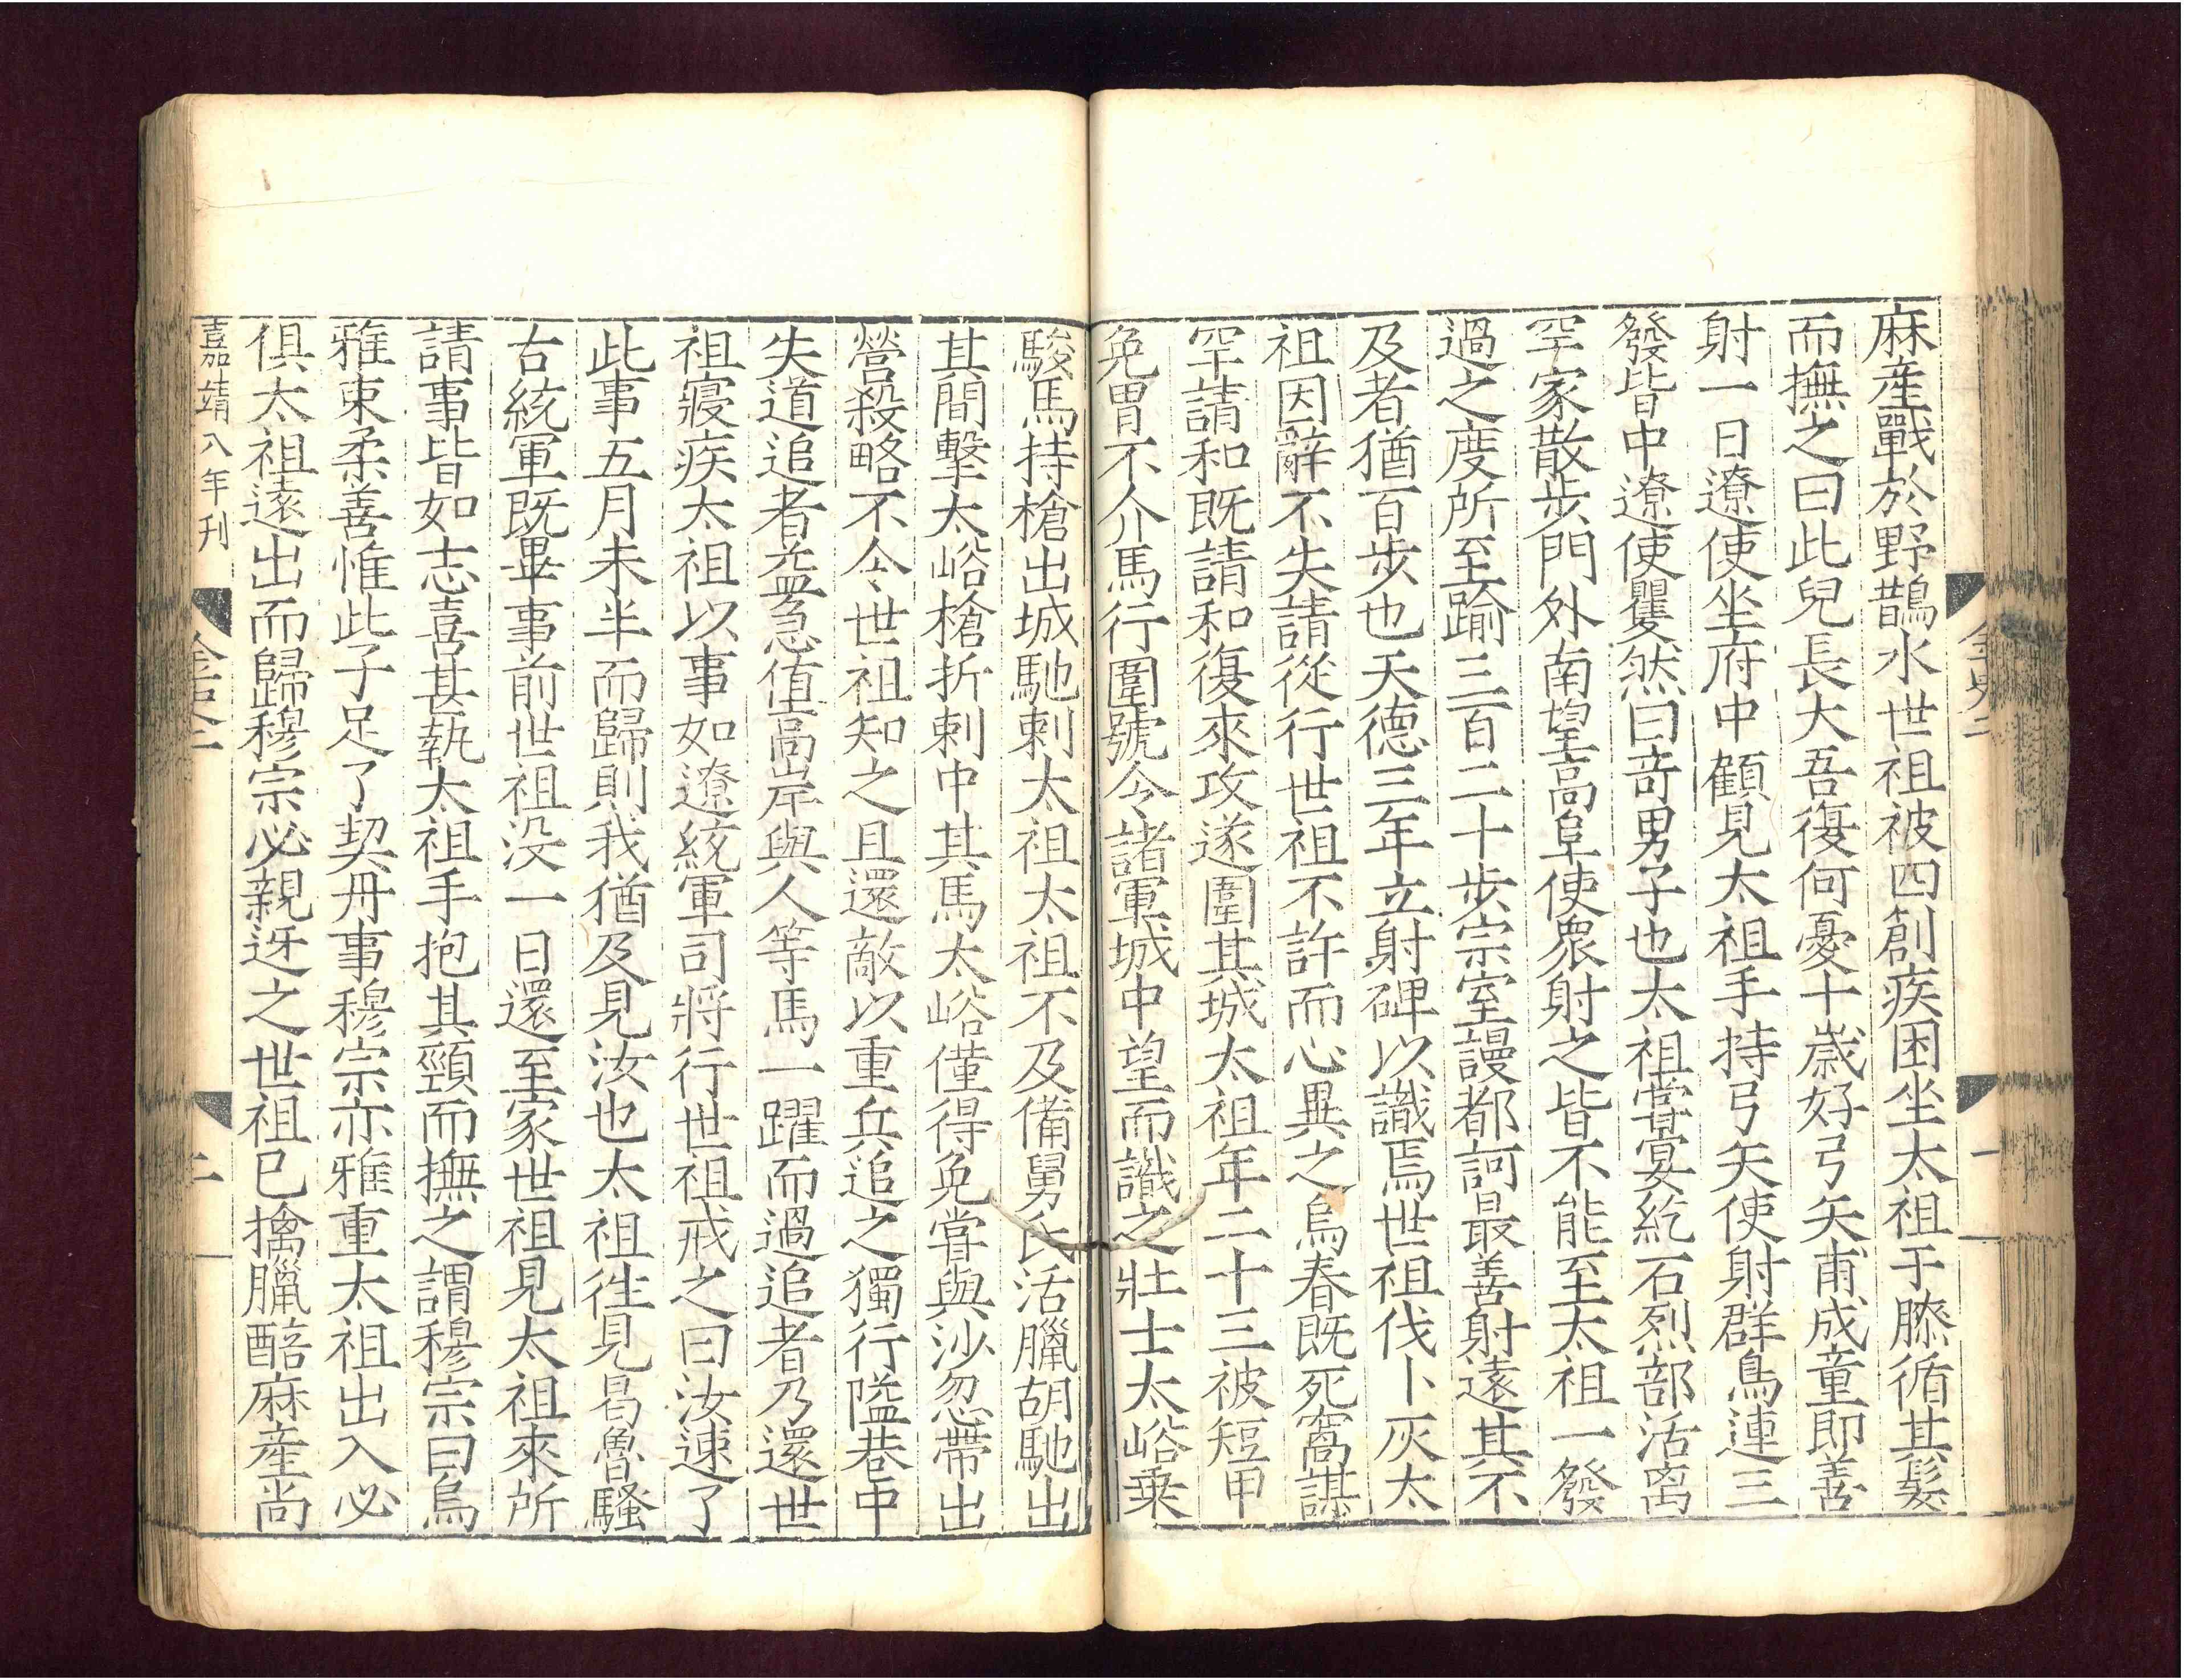 麻產戰於野鵲水世祖被四創疾困坐太祖于膝循其髮
而撫之曰此兒長大吾復何憂十歲好弓矢甫成童即善
射一日遼使坐府中顧見太祖手持弓矢使射群鳥連三
發皆中遼使矍然曰奇男子也太祖嘗宴紇石烈部活离
罕家散步門外南望高阜使衆射之皆不能至太祖一發
過之度所至踰三百二十步宗室謾都訶最善射遠其不
及者猶百步也天德三年立射碑以識焉世祖伐卜灰太
祖因辭不失請從行世祖不許而心異之烏春既死窩謀
罕請和既請和復來攻遂圍其城太祖年二十三被短甲
免胄不介馬行圍號令諸軍城中望而識之壯士太峪乗
駿馬持槍出城馳刺太祖太祖不及備舅氏活臘胡馳出
其間擊太峪槍折刺中其馬太峪僅得免嘗與沙忽帶出
營殺略不令世祖知之且還敵以重兵追之獨行隘巷中
失道追者益急值高岸與人等馬一躍而過追者乃還世
祖寢疾太祖以事如遼統軍司將行世祖戒之曰汝速了
此事五月未半而歸則我猶及見汝也太祖徃見曷魯騷
古統軍既畢事前世祖没一日還至家世祖見太祖來所
請事皆如志喜甚執太祖手抱其頸而撫之謂穆宗曰烏
雅束柔善惟此子足了契丹事穆宗亦雅重太祖出入必
俱太祖遠出而歸穆宗必親迓之世祖已擒臘醅麻產尚
嘉靖八年刊
金史二
二
金史二
一